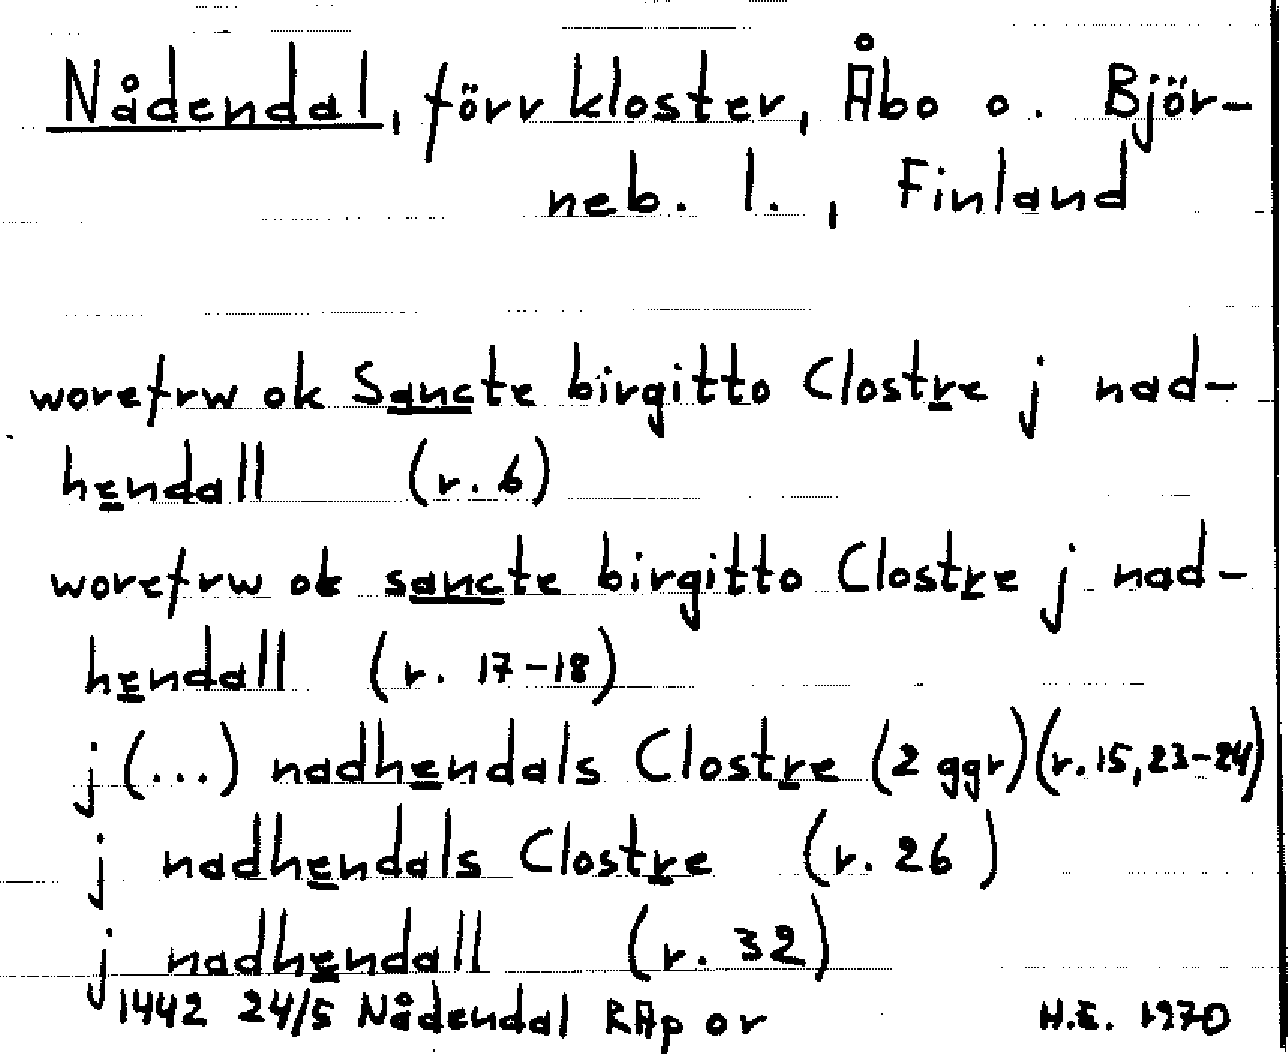 Nådendal, förr kloster, Åbo o. Björ-
neb. l., Finland
worefrw ok Sancte birgitto Clostre j nad-
hendall (r. 6)
worefrw ok sancte birgitto Clostre j nad-
hendall (r. 17-18)
j (...) nadhendals Clostre (2 ggr) (r. 15, 23-24)
j nadhendals Clostre (r. 26)
j nadhendall (r. 32)
1442 24/5 Nådendal RAp or H.E. 1970